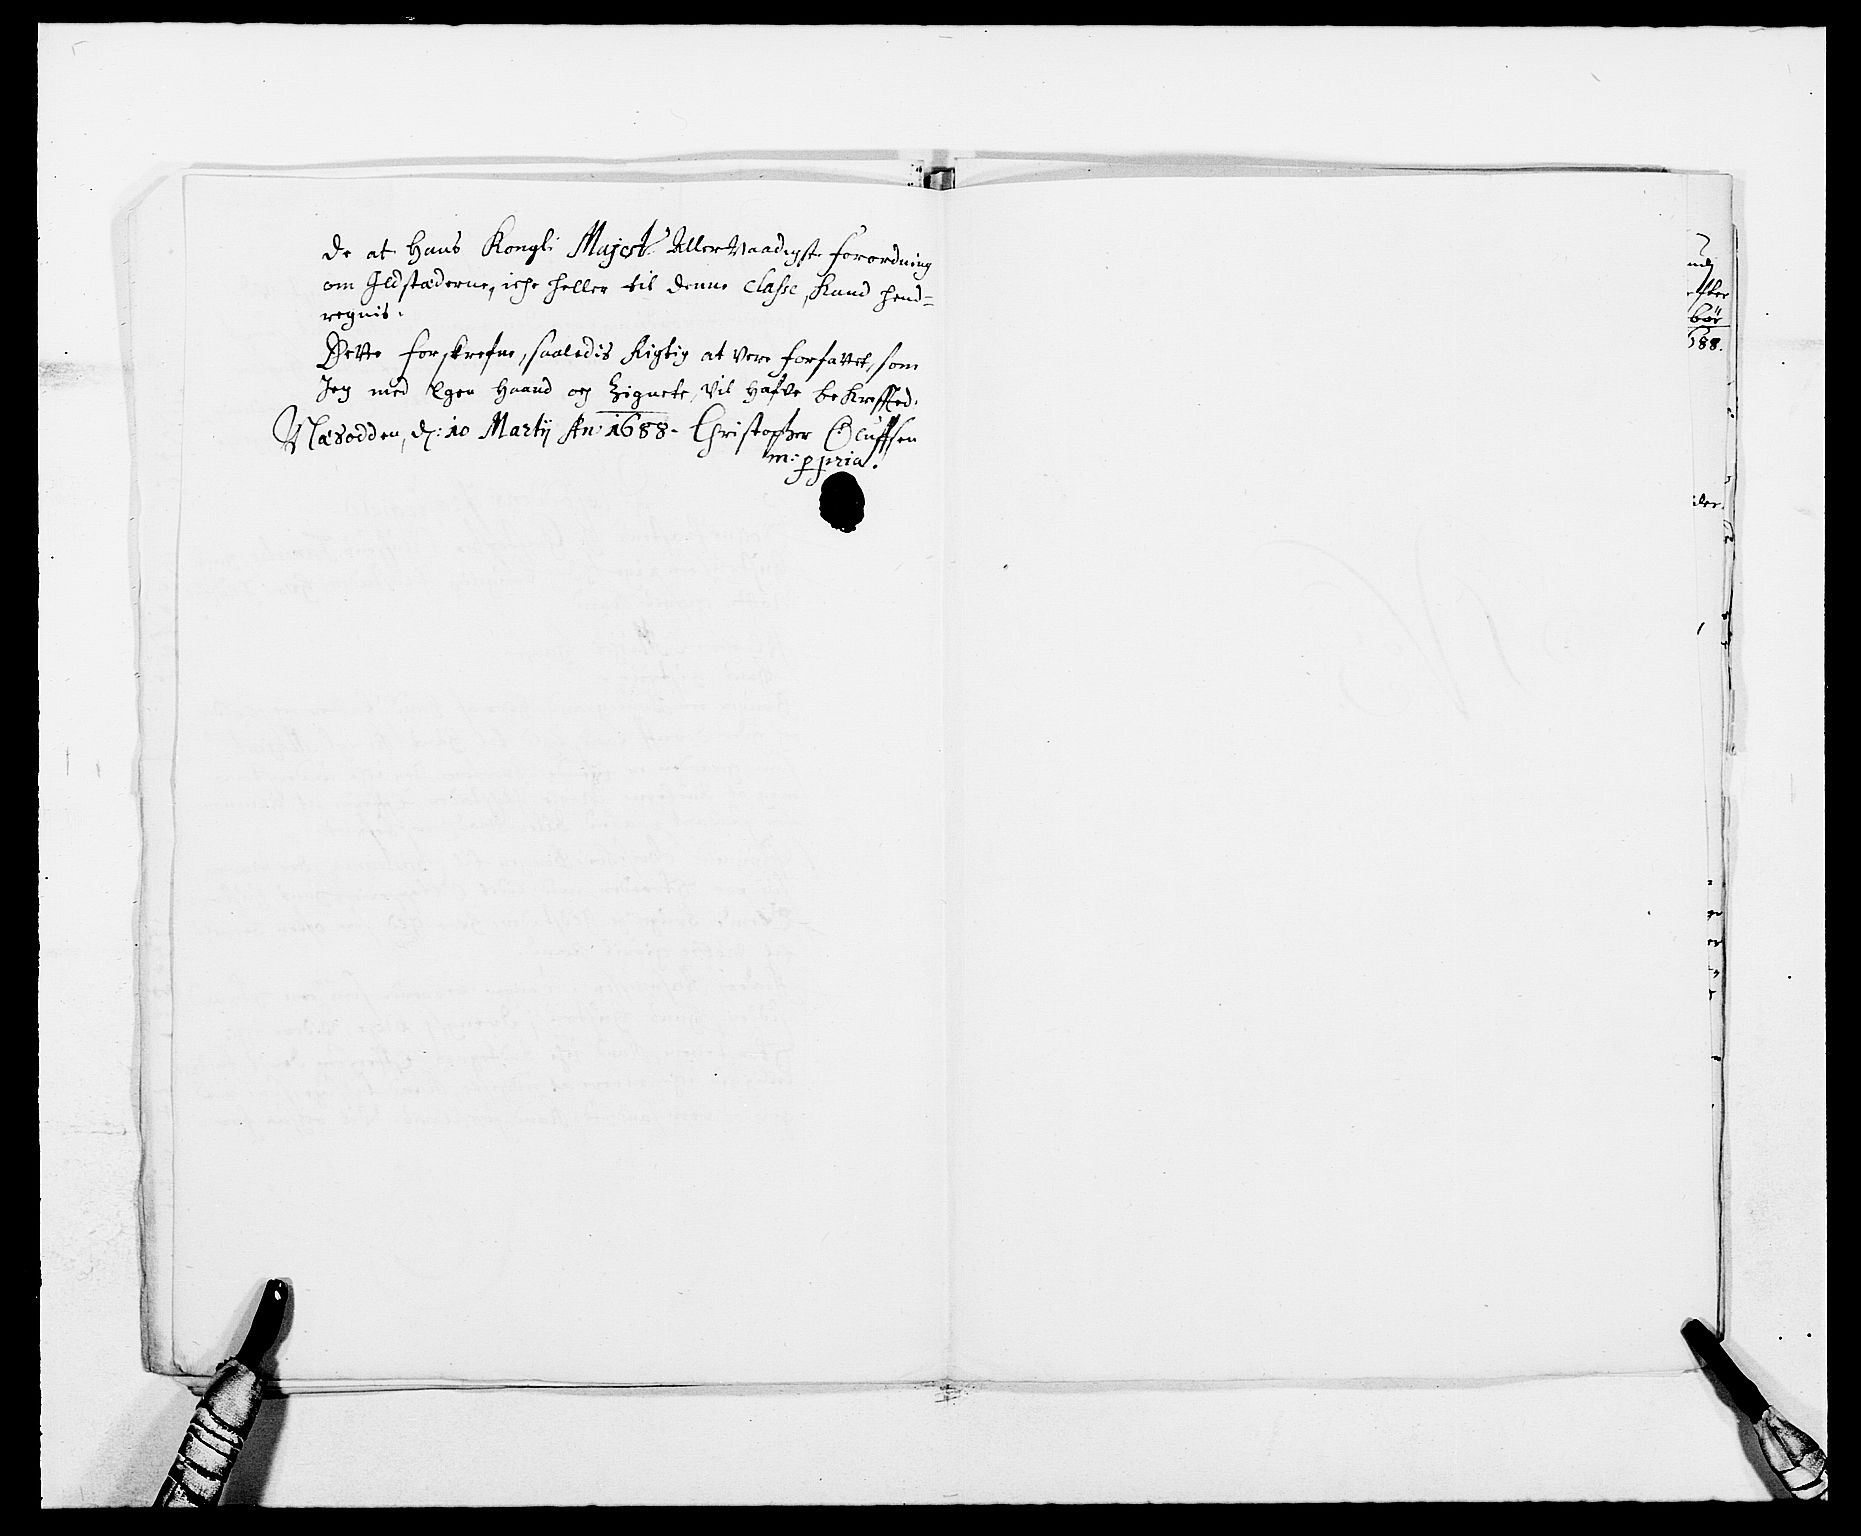 de at Hans Kongli Majest: Allernaadigste forordning
om Ildstæderne, iche heller til denne Classe, Kand hend=
regnis.
Dette forskrefne, saaledis Rigtig at være forfattet, som
Jeg med Egen Haand og Zignete, vil Hafve bekreffted.
Næsodden, d: 10 Martij An: 1688. Christopher Oluffsen
m: ppria.
ier
188.
der